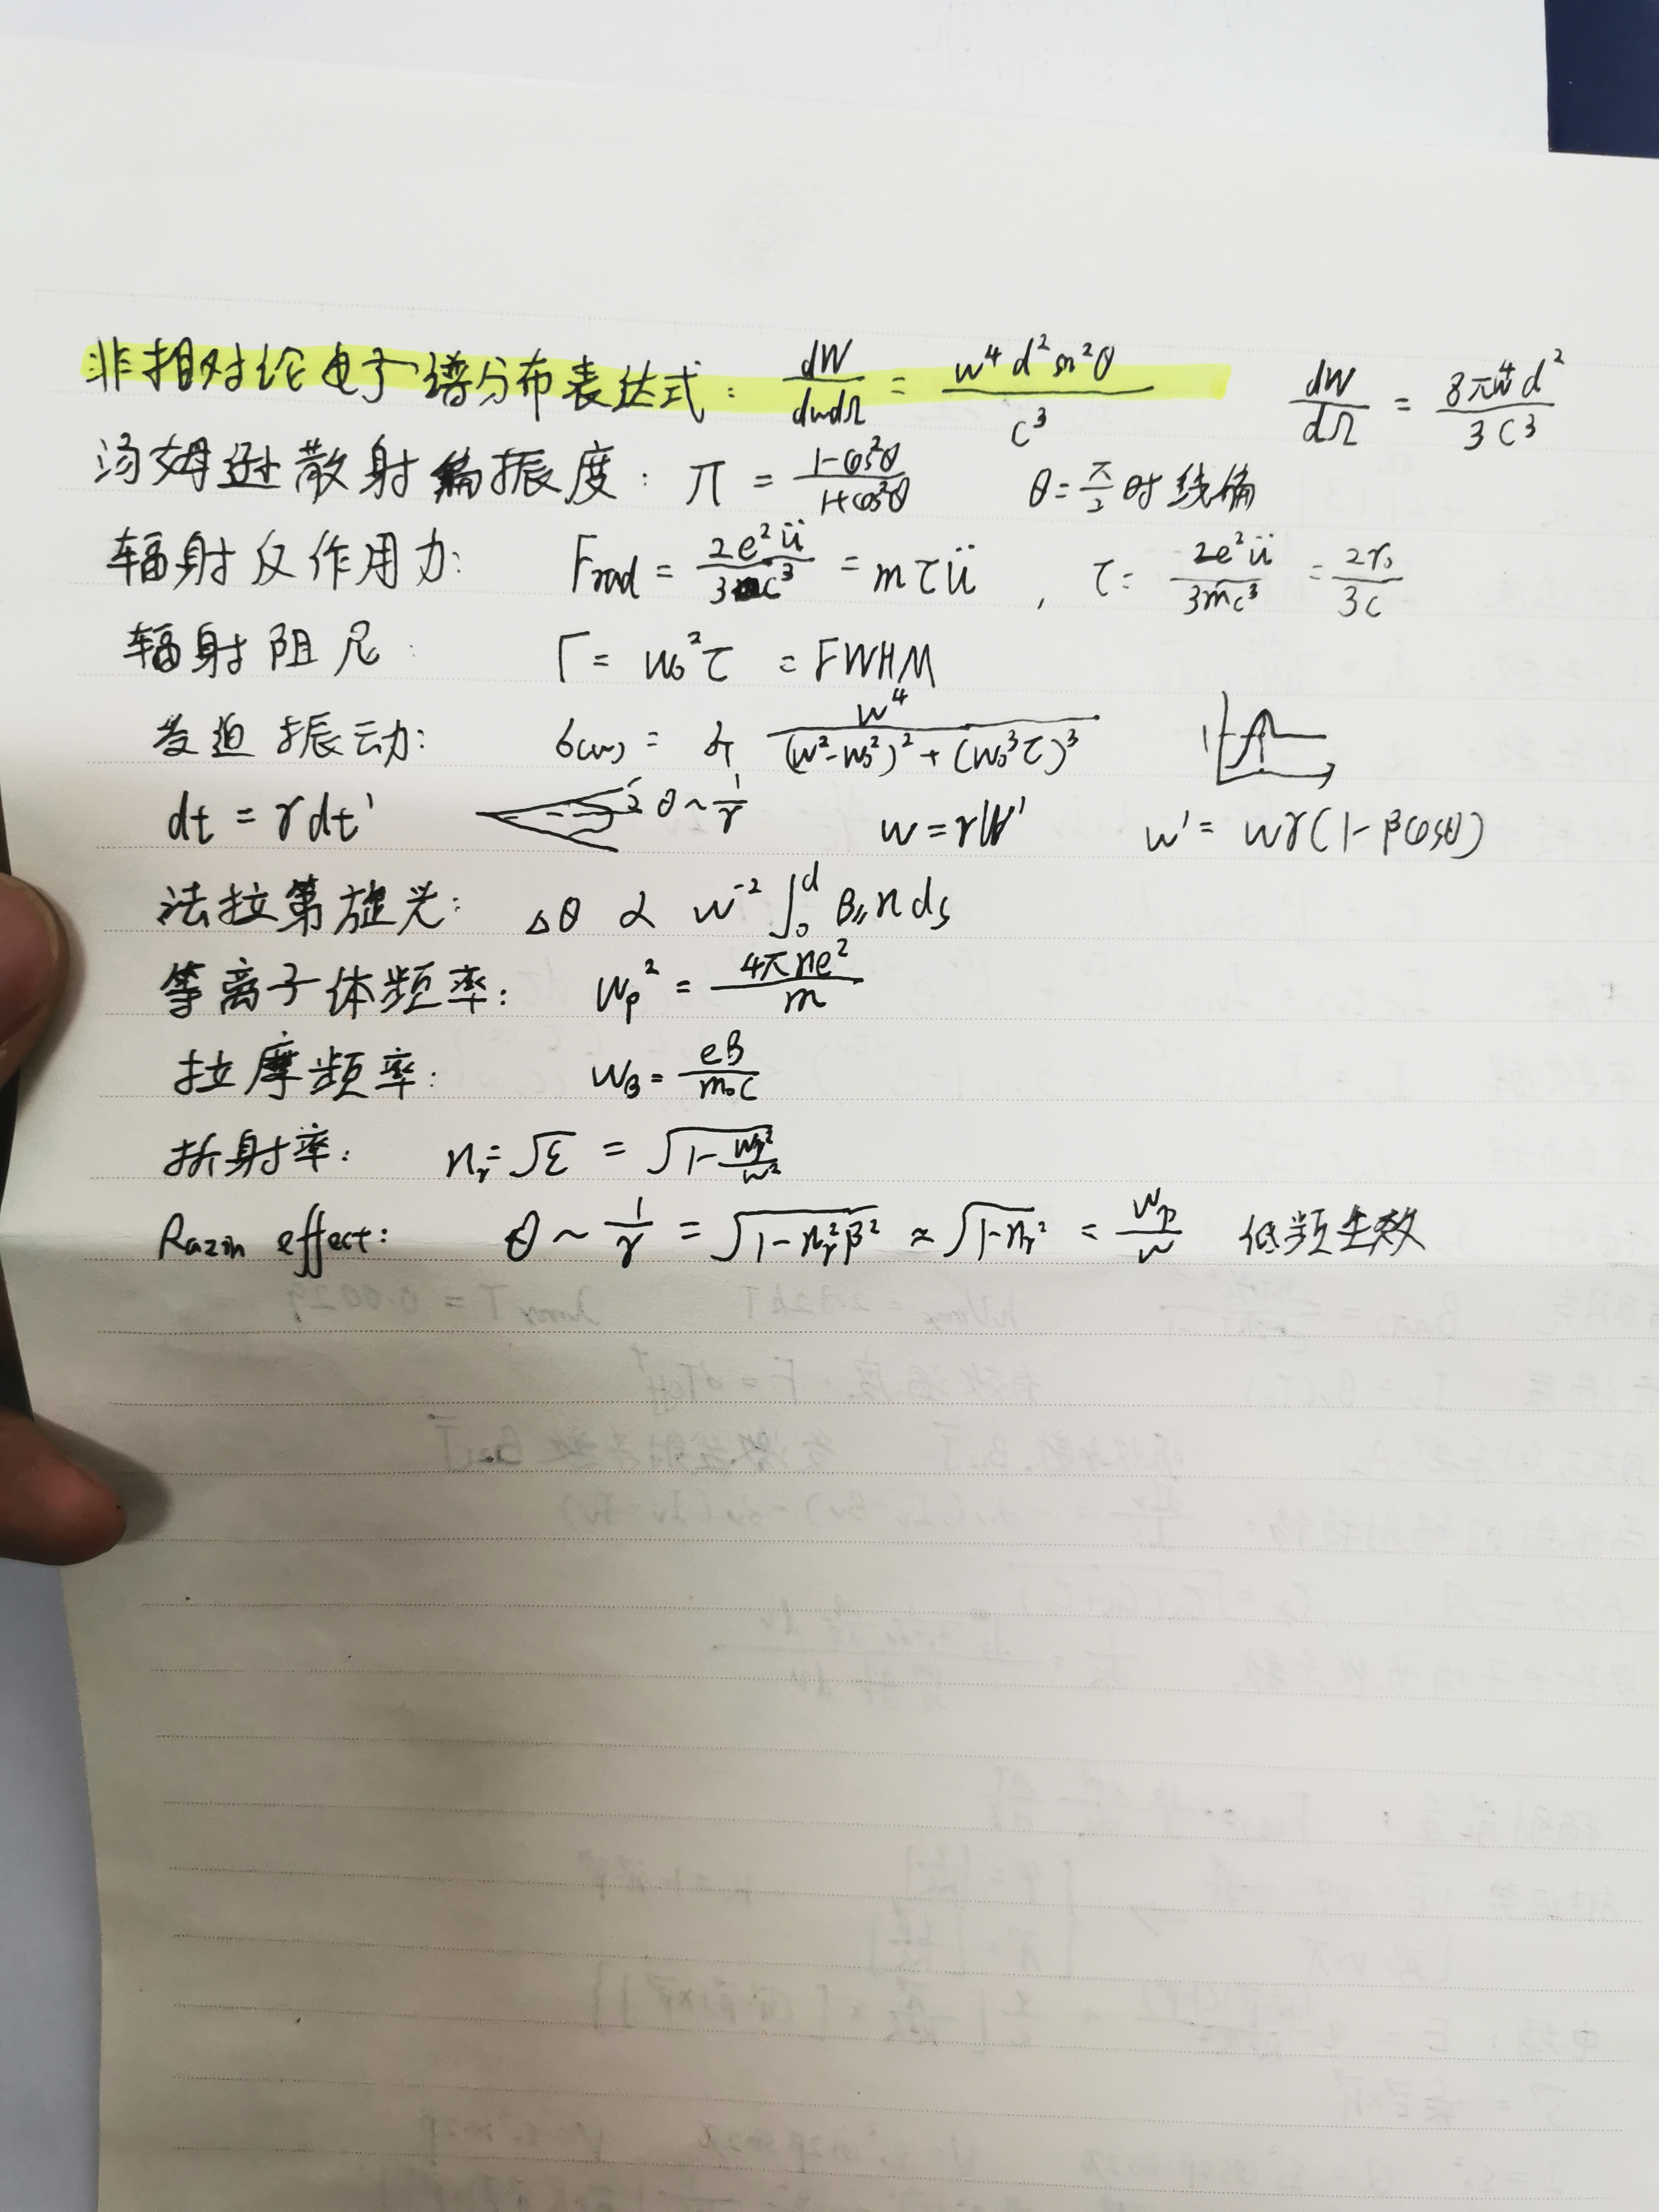 非相对论电子谱分布表达式： dW/dωdΩ = ω⁴d²sin²θ/c³  dW/dΩ = 8πω⁴d²/3c³
汤姆逊散射偏振度： Π = 1-cos²θ/1+cos²θ  θ=π/2时线偏
辐射反作用力： Frad = 2e²ü/3c³ = mτü ， τ = 2e²ü/3mc³ = 2r₀/3c
辐射阻尼： Γ = ω₀²τ = FWHM
受迫振动： σ(ω) = σT ω⁴/(ω²-ω₀²)²+(ω₀³τ)³  1
dt = γdt'  θ~1/γ  ω=γω'  ω' = ωγ(1-βcosθ)
法拉第旋光： Δθ ∝ ω⁻² ∫₀ᵈ B∥ n ds
等离子体频率： ωp² = 4πne²/m
拉摩频率： ωB = eB/m₀c
折射率： nr = √ε = √(1-ωp²/ω²)
Razin effect: θ ~ 1/γ = √(1-nr²β²) ≈ √(1-nr²) = ωp/ω  低频生效